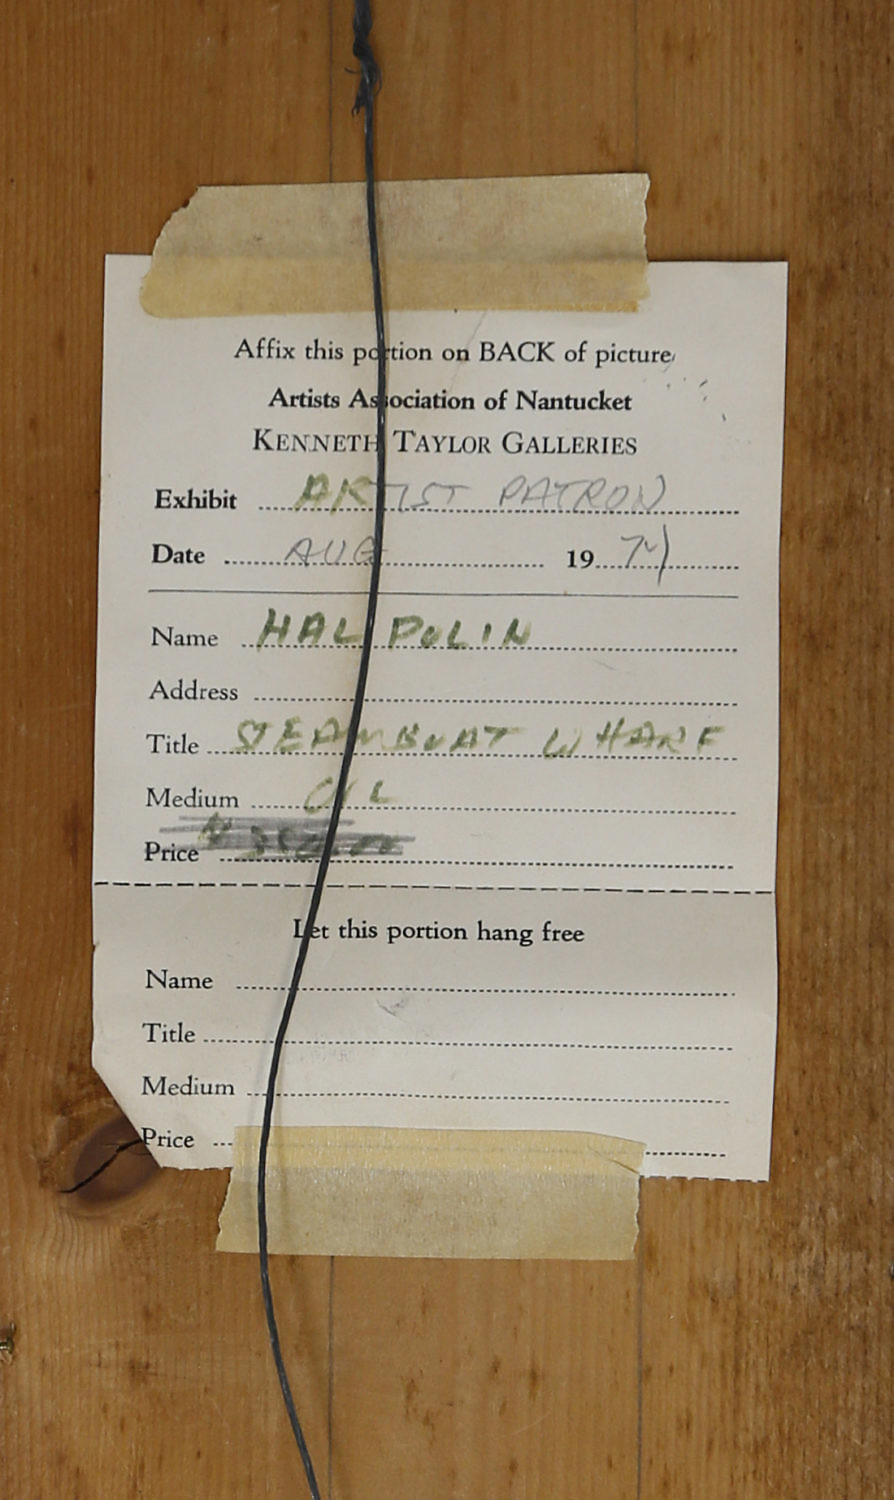 Affix this portion on BACK of picture
Artists Association of Nantucket
KENNETH TAYLOR GALLERIES
Exhibit ARTIST PATRON
Date AUG 19
Name HAL POLIN
Address
Title STEAMBOAT WHARF
Medium OIL
Price
Let this portion hang free
Name
Title
Medium
Price